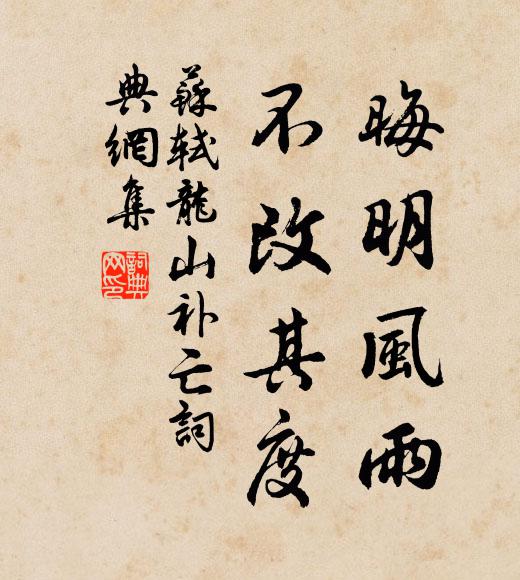 晦明風雨
不改其度
蘇軾龍山补亡詞
典網集
詞典網印